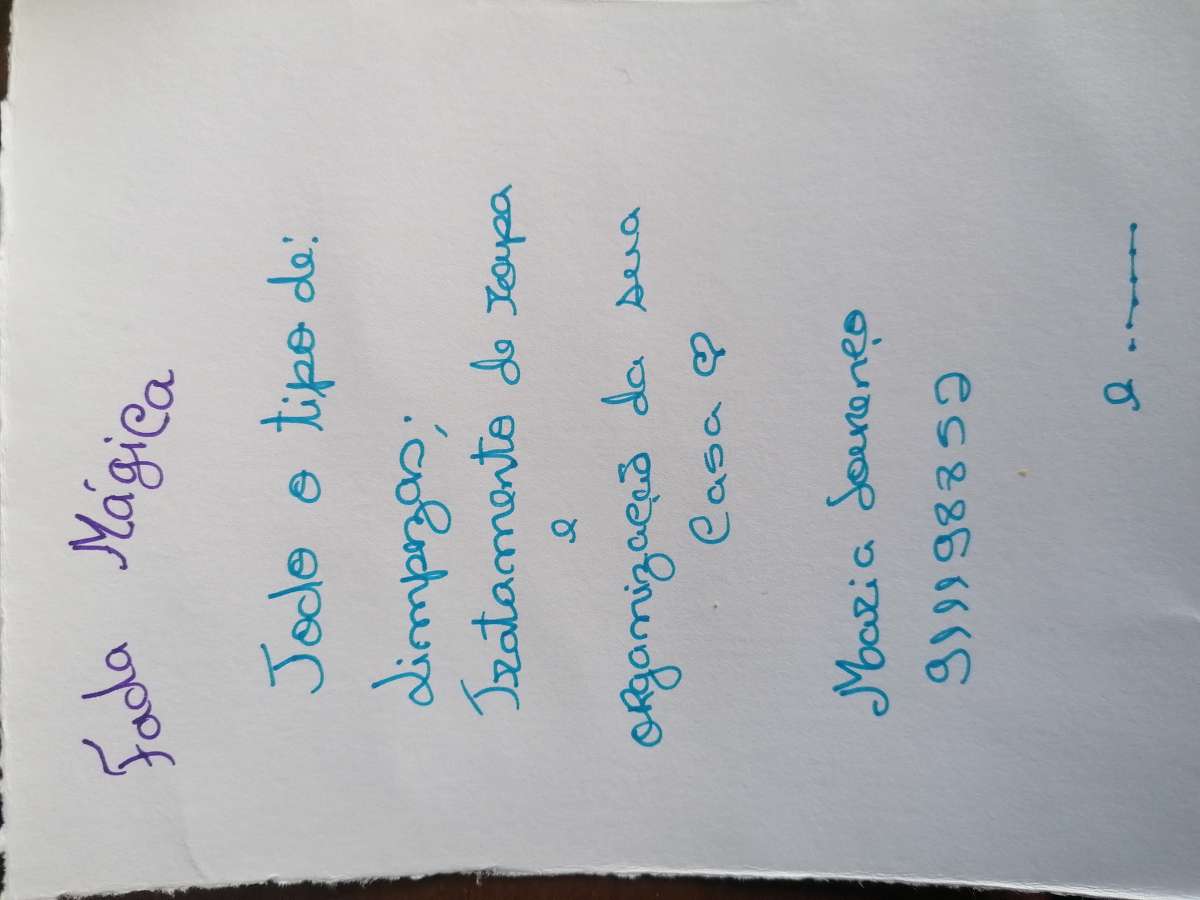 Fada Mágica
Todo o tipo de:
Limpezas;
Tratamento de roupa
e
organização da sua
Casa
Maria Lourenço
e